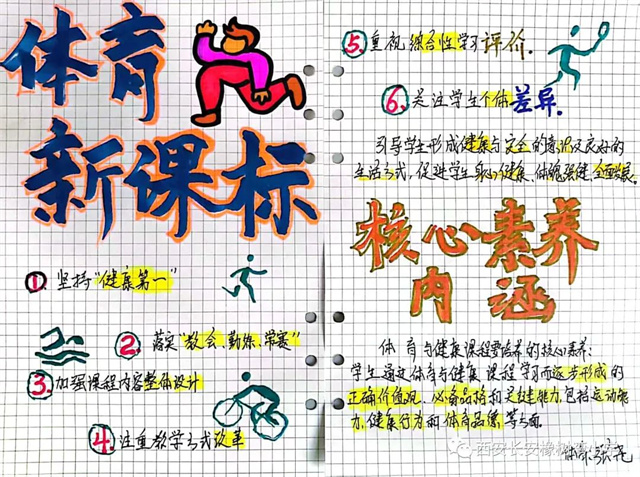 体育
新课标
①坚持“健康第一”
②落实“教会、勤练、常赛”
③加强课程内容整体设计
④注重教学方式改革
⑤重视综合性学习评价.
⑥关注学生个体差异.
引导学生形成健康与安全的意识及良好的
生活方式，促进学生身心健康、体魄强健、全面发展
核心素养
内涵
体育与健康课程要培养的核心素养：
学生通过体育与健康课程学习而逐步形成的
正确价值观、必备品格和关键能力，包括运动能
力、健康行为和体育品德等方面.
西安长安橡树